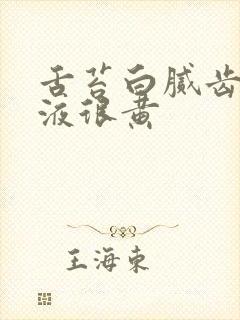 舌苔白腻齿
液很黄
王海东